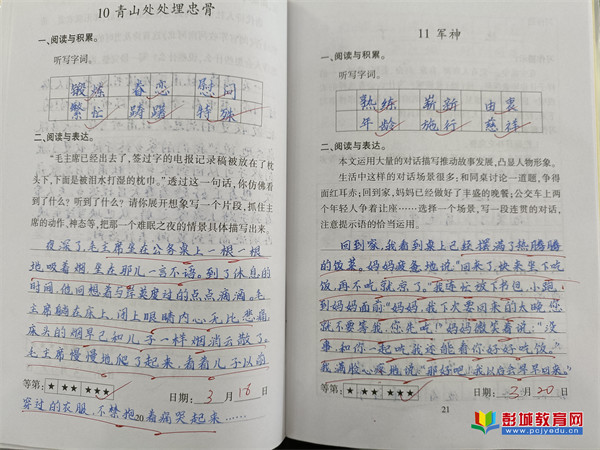 10 青山处处埋忠骨
一、阅读与积累。
听写字词。
锻炼 眷恋 慰问
繁忙 踌躇 特殊
二、阅读与表达。
“毛主席已经出去了,签过字的电报记录稿被放在了枕
头下,下面是被泪水打湿的枕巾。”透过这一句话,你仿佛看
到了什么?听到了什么?请你展开想象写一个片段,抓住主
席的动作、神态等,把那一个难眠之夜的情景具体描写出来。
夜深了,毛主席坐在公务桌上一根一根
地吸着烟坐在那儿一言不语。到了休息的
时间,他回想着与岸英度过的点点滴滴。毛
主席躺在床上,闭上眼睛内心无比悲痛
床头的烟早已和儿子一样烟消云散了。
毛主席慢慢地爬了起来,看着儿子以前
等第: ★ ★★ ★★★ 日期: 3 月 18 日
穿过的衣服,不禁抱着痛哭起来……
20
11 军神
一、阅读与积累。
听写字词。
熟练 崭新 由衷
年龄 施行 慈祥
二、阅读与表达。
本文运用大量的对话描写推动故事发展,凸显人物形象。
生活中这样的对话场景很多:和同桌讨论一道题,争得
面红耳赤;回到家,妈妈已经做好了丰盛的晚餐;公交车上两
个年轻人争着让座……选择一个场景,写一段连贯的对话,
注意提示语的恰当运用。
回到家,我看到桌上已经摆满了热腾腾
的饭菜。妈妈疲惫地说:“回来了,快来坐下吃
饭,再不吃就凉了。”我连忙放下书包,小跑
到妈妈面前:“妈妈,我下次要回来的太晚,您
就不要等我,你先吃!”妈妈微笑着说:“没
事,和你一起吃我还能看你好好吃饭。”
我满脸心疼地说:“那好吧!我以后会早早回来。”
等第: ★ ★★ ★★★ 日期: 3 月 20 日
21
彭城教育网
www.pcjyedu.cn